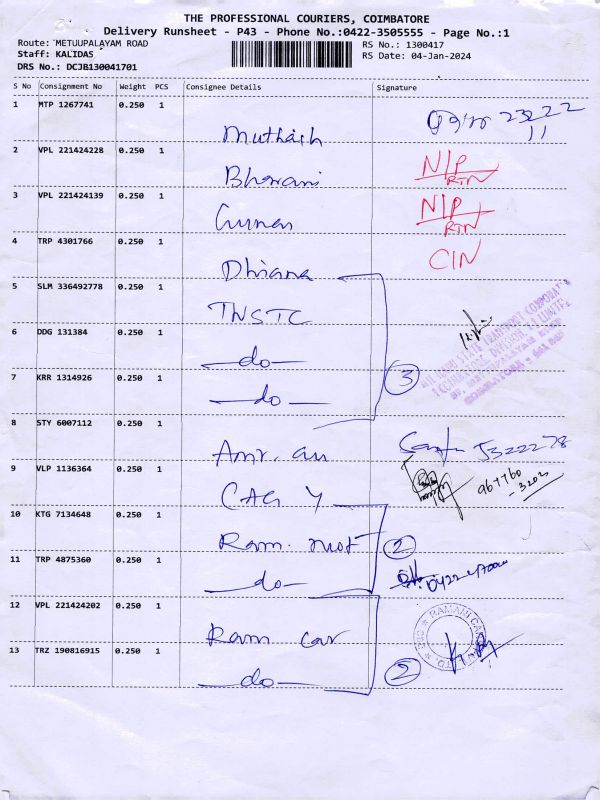 THE PROFESSIONAL COURIERS, COIMBATORE
Delivery Runsheet - P43 - Phone No.:0422-3505555 - Page No.:1
Route: METUUPALAYAM ROAD RS No.: 1300417
Staff: KALIDAS RS Date: 04-Jan-2024
DRS No.: DCJB130041701
S No Consignment No Weight PCS Consignee Details Signature
1 MTP 1267741 0.250 1
Muthaih 23222
11
2 VPL 221424228 0.250 1
Bhavani N/P
RTN
3 VPL 221424139 0.250 1
Gunan N/P
RTN
4 TRP 4301766 0.250 1
Dhiana CIN
5 SLM 336492778 0.250 1
TNSTC
6 DDG 131384 0.250 1
do
7 KRR 1314926 0.250 1
do 3
8 STY 6007112 0.250 1
9 VLP 1136364 0.250 1
10 KTG 7134648 0.250 1
Ram. 2
11 TRP 4875360 0.250 1
do
12 VPL 221424202 0.250 1
Ram car RAMANI CARS
13 TRZ 190816915 0.250 1
do 2